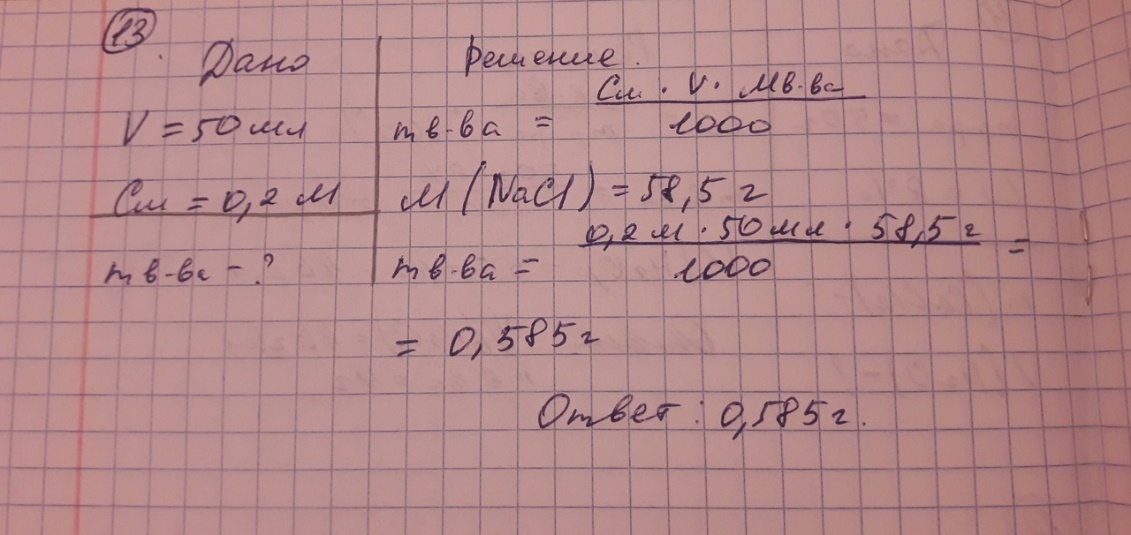 13
Дано
V = 50 мл
См = 0,2 М
m в-ва - ?
Решение.
m в-ва = См · V · Мв-ва / 1000
М (NaCl) = 58,5 г
m в-ва = 0,2 м · 50 мл · 58,5 г / 1000 =
= 0,585 г
Ответ: 0,585 г.